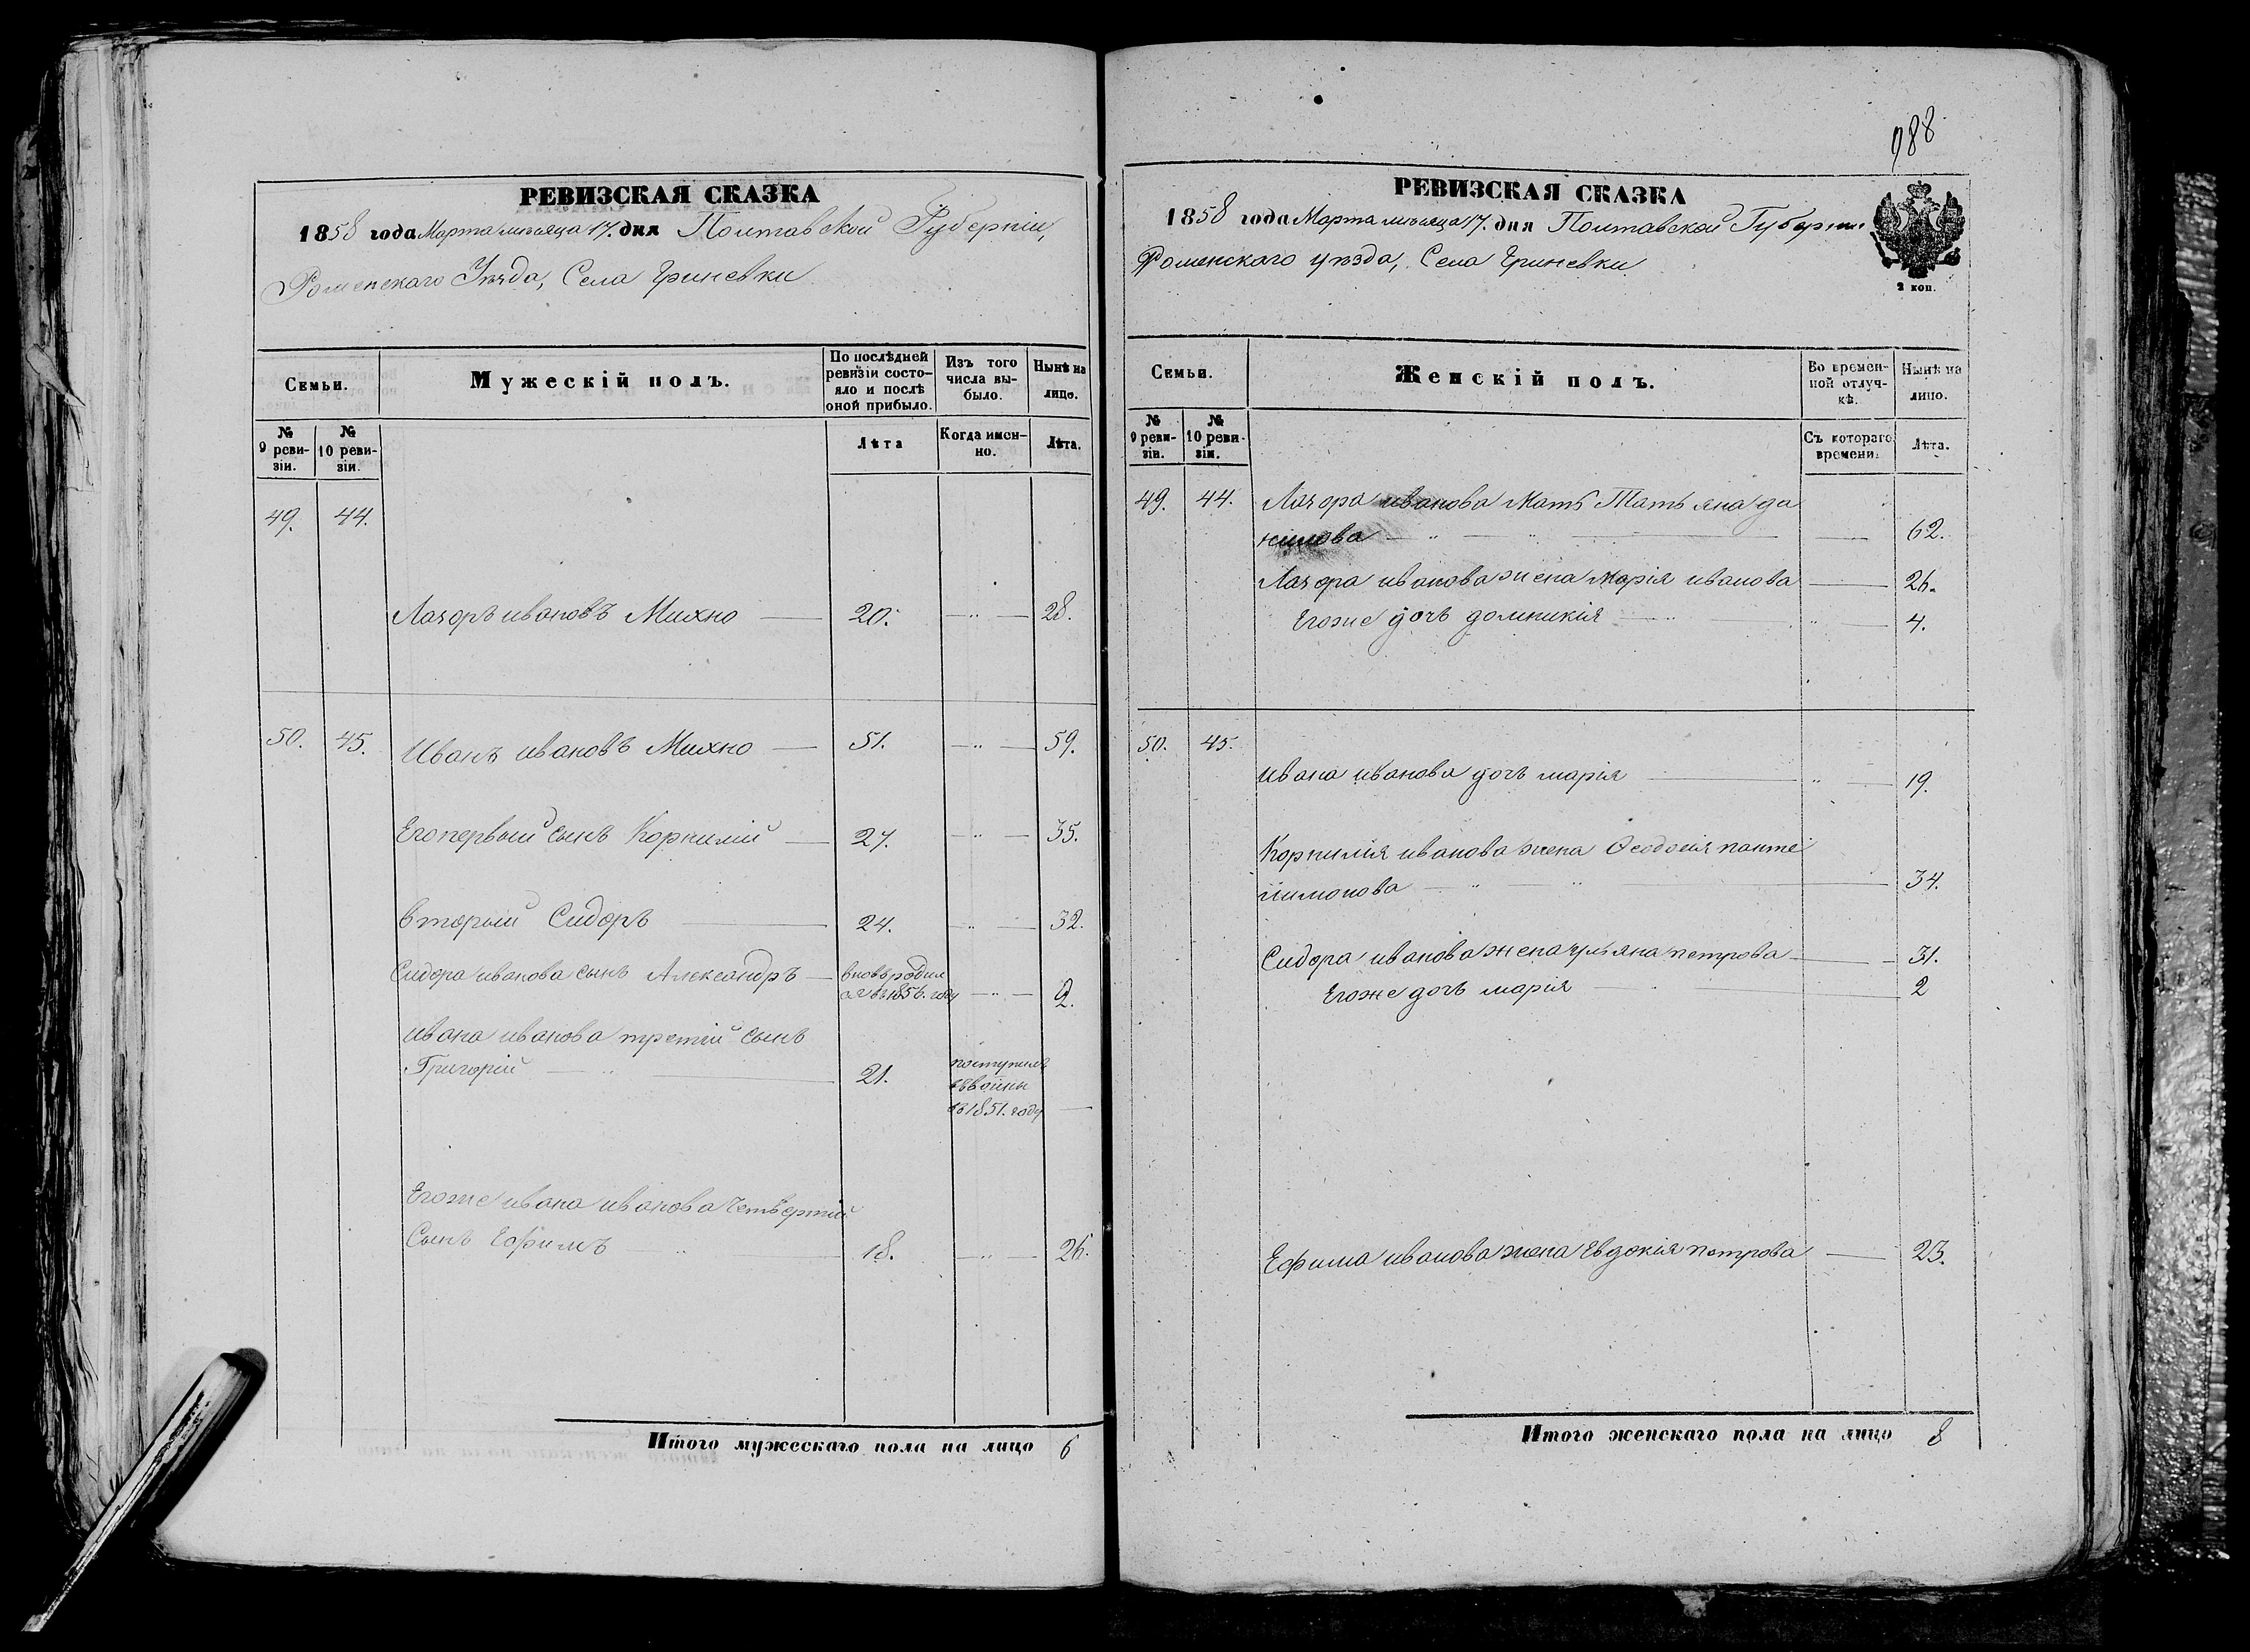 РЕВИЗСКАЯ СКАЗКА
1858 года Марта месяца 17. дня Полтавской Губерніи,
Роменскаго Уѣзда, Села Гриневки
Семьи.
Мужескій полъ.
По послѣдней ревизіи состояло и послѣ оной прибыло.
Изъ того числа выбыло.
Нынѣ на лицо.
№ 9 ревизіи.
№ 10 ревизіи.
Лѣта
Когда именно.
Лѣта.
49. 44.
Лазоръ ивановъ Михно — 20. — „ — 28.
50. 45. Иванъ ивановъ Михно — 51. — „ — 59.
Его первый сынъ Корнилій — 27. — „ — 35.
вторый Сидоръ — 24. — „ — 32.
Сидора иванова сынъ Александръ — вновь родил
ся въ 1856. году — „ — 2.
ивана иванова третій сынъ
Григорій — „ — 21. поступилъ
въ 1851. году —
Егоже ивана иванова четвертій
Сынъ Ефимъ „ 18. — „ — 26.
Итого мужескаго пола на лицо 6
988
РЕВИЗСКАЯ СКАЗКА
1858 года Марта месяца 17. дня Полтавской Губерніи
Роменскаго уѣзда, Села Гриневки
2 коп.
Семьи.
Женскій полъ.
Во временной отлучкѣ.
Нынѣ на лицо.
№ 9 ревизіи.
№ 10 ревизіи.
Съ котораго времени.
Лѣта.
49. 44. Лазора иванова Мать Татьяна да
нилова — „ — „ — 62.
Лазора иванова жена Марія иванова — 26.
Егоже дочь домникія — „ — 4.
50. 45.
ивана иванова дочь марія — „ — 19.
Корнилія иванова жена Феодосія панте
лимонова — „ — „ — 34.
Сидора иванова жена ульяна петрова — 31.
Егоже дочь марія — 2
Ефима иванова жена Евдокія петрова — 23.
Итого женскаго пола на лицо 8